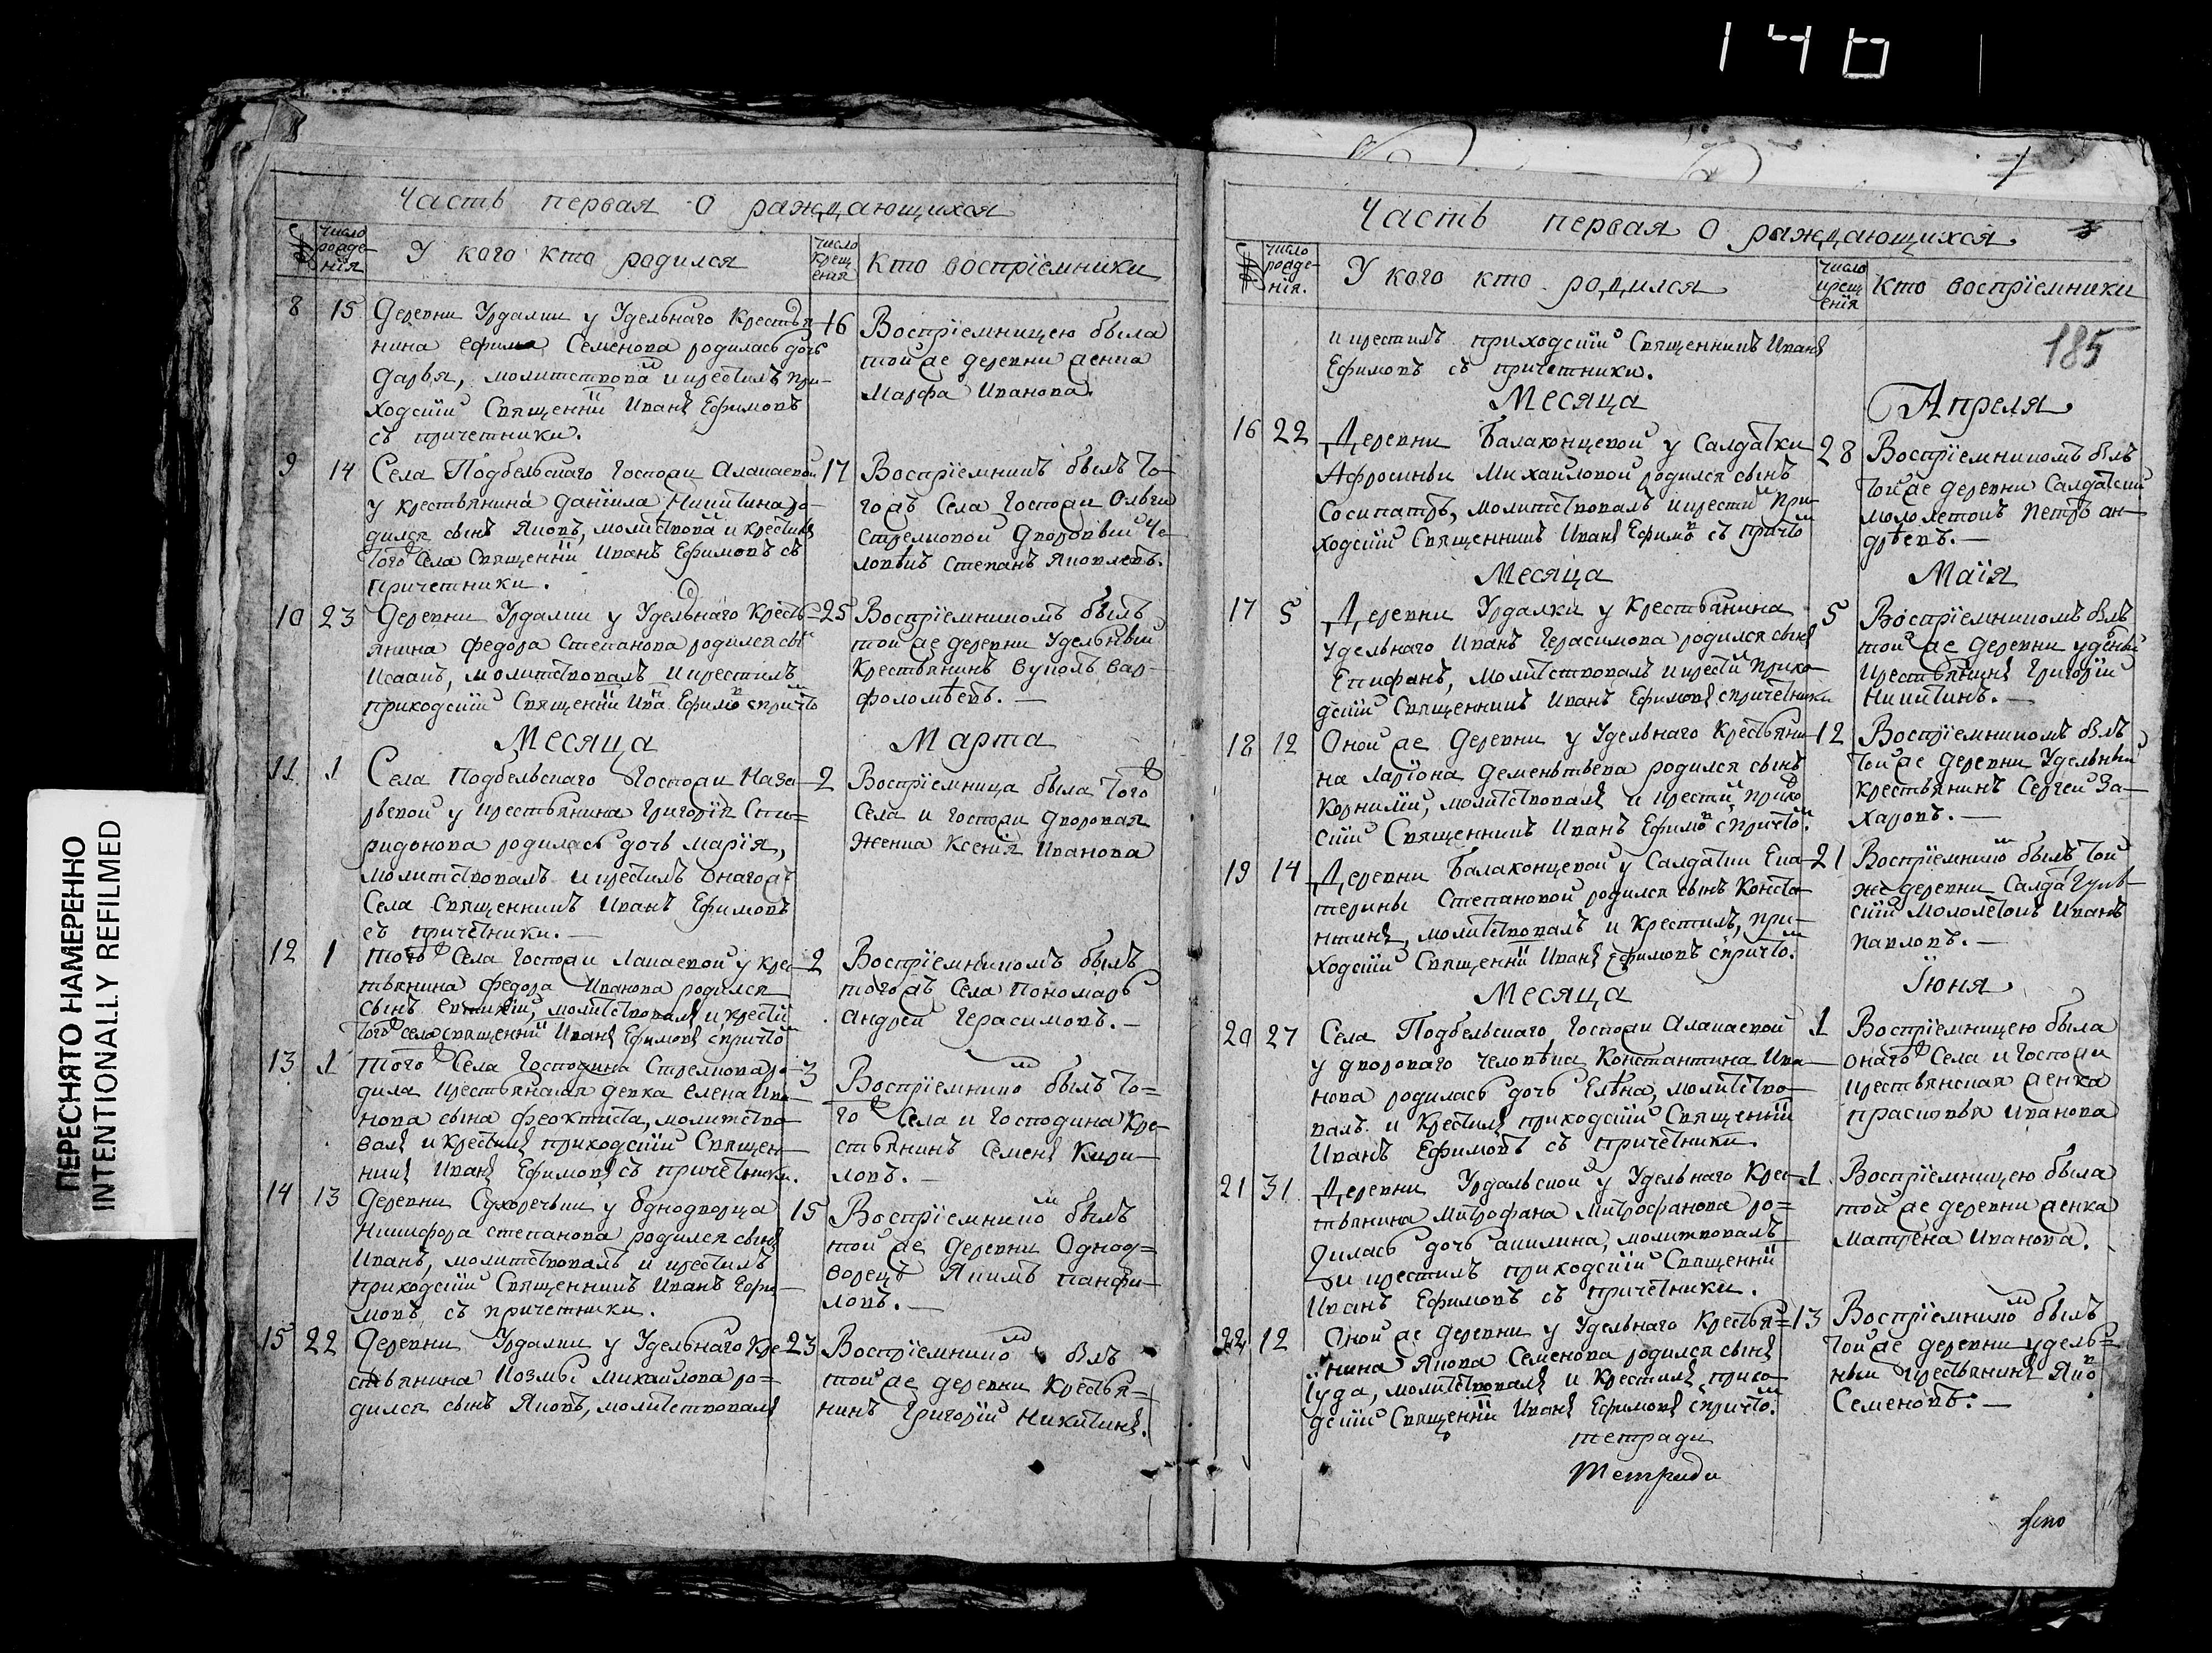 140
ПЕРЕСНЯТО НАМЕРЕННО
INTENTIONALLY REFILMED
Часть первая о раждающихся
№
Число рожде-нія
У кого кто родился
Число крещ ения
Кто воспріемники
8 15 16
Деревни Урдалки у Удельнаго Крестья
нина Ефима Семенова родилась дочь
Дарья, молитствова и крестилъ при-
ходскій Священни Иванъ Ефимовъ
съ причетники.
Воспріемницею была
той же деревни женка
Марфа Иванова.
9 14 17
Села Подбельскаго Госпожи Алакаевой
у крестьянина Даніила Никитина ро-
дился сынъ Яковъ, молитствова и крестилъ
того Села Священни Иванъ Ефимовъ съ
причетники.
Воспріемникъ былъ то-
гожъ Села Госпожи Ольги
Стрелковой Дворовый че-
ловѣкъ Степанъ Яковлевъ.
10 23 25
Деревни Урдалки у Удельнаго Кресть-
янина Федора Степанова родился сы
Исаакъ, молитствовалъ и крестилъ
приходскій Священни Ива Ефимо с причто
Воспріемникомъ былъ
той же деревни Удельный
Крестьянинъ Вуколъ Вар-
фоломѣевъ.
Месяца Марта
11 1 2
Села Подбельскаго Госпожи Наза-
рьевой у крестьянина Григорія Спи-
ридонова родилась дочь Марія,
молитствовалъ и крестилъ онагожъ
Села Священникъ Иванъ Ефимовъ
съ причетники.
Воспріемница была того
Села и Госпожи дворовая
женка Ксенія Иванова
12 1 2
Тогожъ Села Госпожи Лакаевой у крес
тьянина Федора Иванова родился
сынъ молитствовалъ и крести
того Села священни Иванъ Ефимовъ с причто
Воспріемникомъ былъ
тогожъ Села Пономарь
Андрей Герасимовъ.
13 1 3
Того Села Господина Стрелкова ро-
дила крестьянская девка Елена Ива
нова сына Феоктиста, молитство
валъ и крестилъ приходскій Священ-
никъ Иванъ Ефимовъ съ причетники.
Воспріемнико былъ то-
го Села и Господина Кре
стьянинъ Семенъ Кири-
ловъ.
14 13 15
Деревни Сухоречьки у Однодворца
Никифора Степанова родился сынъ
Иванъ, молитствовалъ и крестилъ
приходскій Священникъ Иванъ Ефи-
мовъ съ причетники.
Воспріемнико былъ
той же Деревни Однод-
ворецъ Якимъ Панфи-
ловъ.
15 22 23
Деревни Урдалки у Удельнаго Кре-
стьянина Козмы Михаилова ро-
дился сынъ Яковъ, молитствовалъ
Воспріемнико былъ
той же деревни Крестья-
нинъ Григорій Никитинъ.
Часть первая о раждающихся
№
Число рожде-нія.
У кого кто родился
Число крещ енія
Кто воспріемники
185
и крестилъ приходскій Священникъ Иванъ
Ефимовъ съ причетники.
Месяца Апреля
16 22 28
Деревни Балаконцевой у Салдатки
Афросиньи Михаиловой родился сынъ
Сосипатръ, молитствовалъ и крести при
ходскій Священникъ Иванъ Ефимо съ причто
Воспріемникомъ былъ
той же деревни Салдатскій
мололетокъ Петръ Ан-
дрѣевъ.
Месяца Маія
17 5 5
Деревни Урдалки у Крестьянина
Удельнаго Иванъ Герасимова родился сынъ
Епифанъ, молитствовалъ и крести прихо-
дскій Священникъ Иванъ Ефимовъ с причетники
Воспріемникомъ былъ
той же Деревни уделный
Крестьянинъ Григорій
Никитинъ.
18 12 12
Оной же Деревни у Удельнаго Крестьяни-
на Ларіона Деменьтьева родился сынъ
Корнилій, молитствовалъ и крести прихо
скій Священникъ Иванъ Ефимо с причто.
Воспріемникомъ былъ
той же деревни Удельный
Крестьянинъ Сергей За-
харовъ.
19 14 21
Деревни Балаконцевой у Салдатки Ека-
терины Степановой родился сынъ Конста
нтинъ, молитствовалъ и крестилъ, при-
ходскій Священни Иванъ Ефимовъ с причто.
Воспріемнико былъ той
же деревни
скій мололетокъ Иванъ
Павловъ.
Месяца Іюня
20 27 1
Села Подбельскаго Госпожи Алакаевой
у двороваго человѣка Константина Ива-
нова родилась дочь Елѣна, молитство-
валъ и Крестилъ приходскій Священни
Иванъ Ефимовъ съ причетники.
Воспріемницею была
онагожъ Села и Госпожи
крестьянская женка
Прасковья Иванова
21 31 1
Деревни Урдальской у Удельнаго Крес-
тьянина Митрофана Митрофанова ро-
дилась дочь Акилина, молитвовалъ
и крестилъ приходскій Священни
Иванъ Ефимовъ съ причетники.
Воспріемницею была
той же деревни женка
Матрена Иванова.
22 12 13
Оной же деревни у Удельнаго Крестья-
нина Якова Семенова родился сынъ
Іуда, молитствовалъ и Крестилъ прихо
дскій Священни Иванъ Ефимовъ с причто.
Воспріемнико былъ
той же деревни удель-
ный крестьянинъ Яко
Семеновъ.
тетради
Тетради